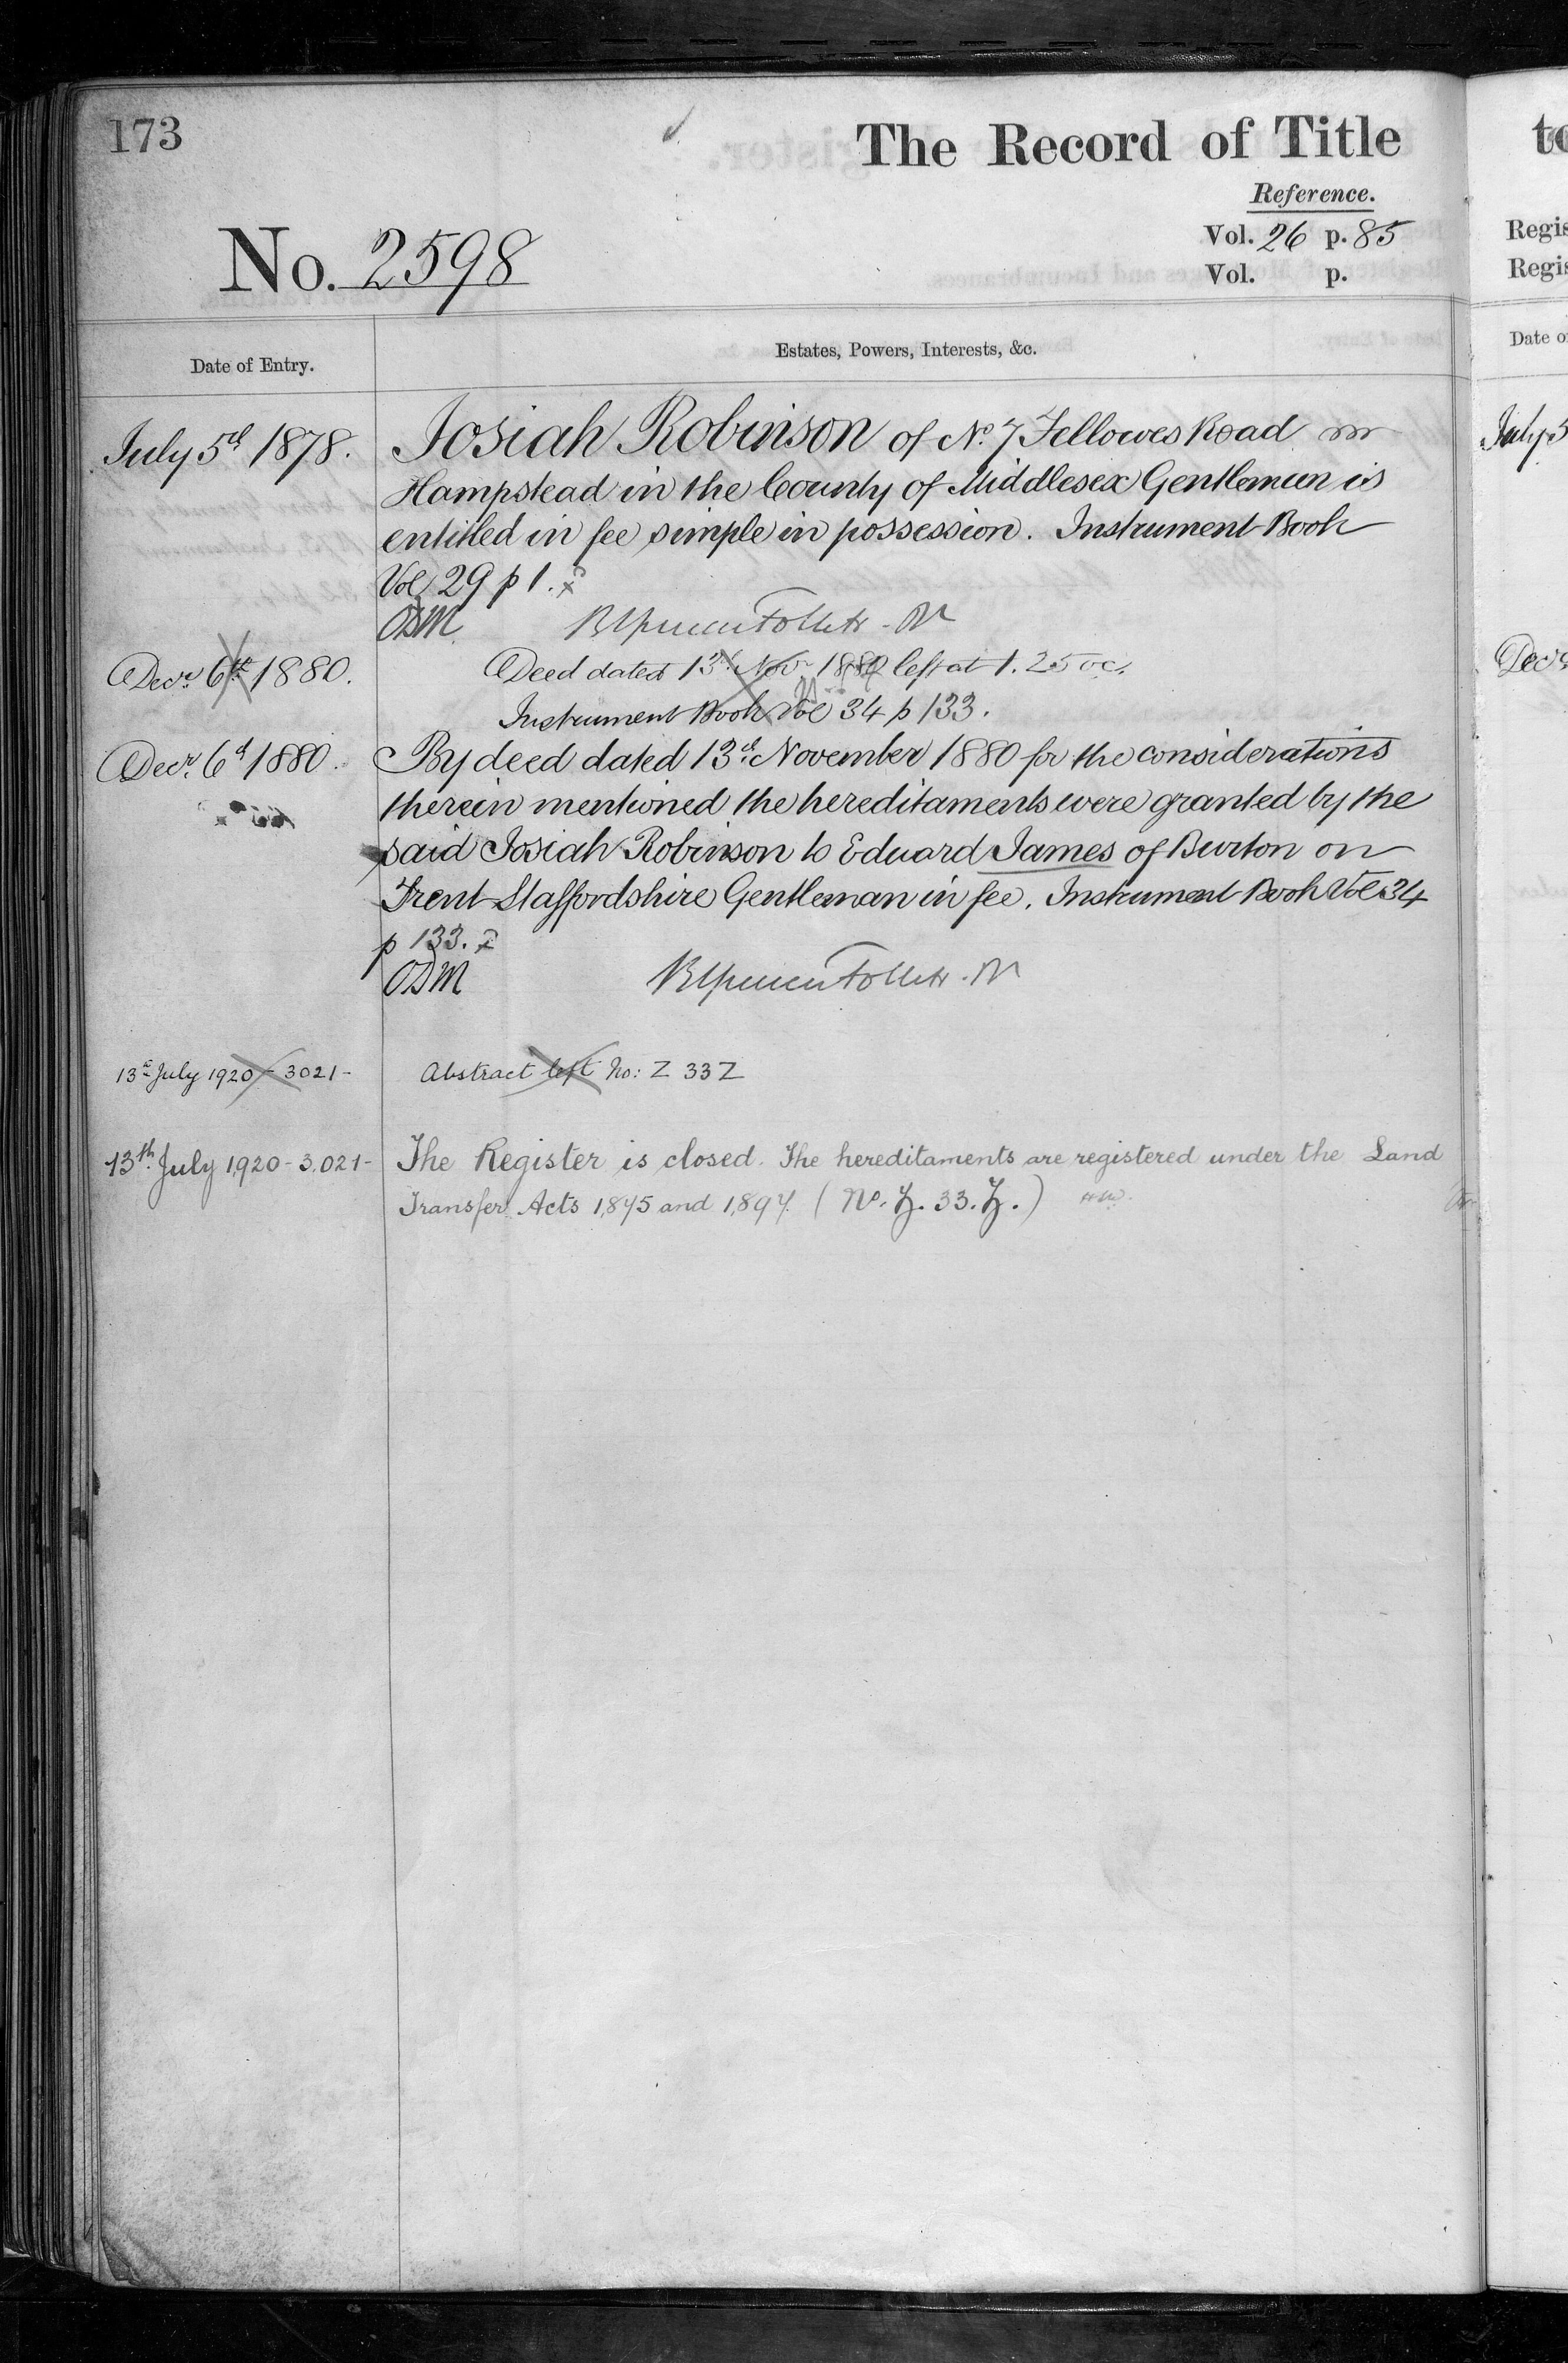 173
The Record of Title
Reference.
Vol. 26 p. 85
Vol. p.
No. 2598
Date of Entry.
Estates, Powers, Interests, &c.
July 5th 1878.
Josiah Robinson of No. 7 Fellowes Road
Hampstead in the County of Middlesex Gentleman is
entitled in fee simple in possession. Instrument Book
Vol 29 p 1.
ODM
Decr. 6th 1880.
Deed dated 13th Novr 1880 left at 1.25 oc.
Instrument Book Vol 34 p 133.
Decr. 6th 1880.
By deed dated 13th November 1880 for the considerations
therein mentioned the hereditaments were granted by the
said Josiah Robinson to Edward James of Burton on
Trent Staffordshire Gentleman in fee. Instrument Book Vol 34
p 133.
ODM
13th July 1920 - 3021 -
Abstract left No: Z 33 Z
13th July 1920 - 3.021 -
The Register is closed. The hereditaments are registered under the Land
Transfer Acts 1875 and 1897. (No. Z. 33. Z.)
to
Regis
Regis
Date o
July 5
Decr